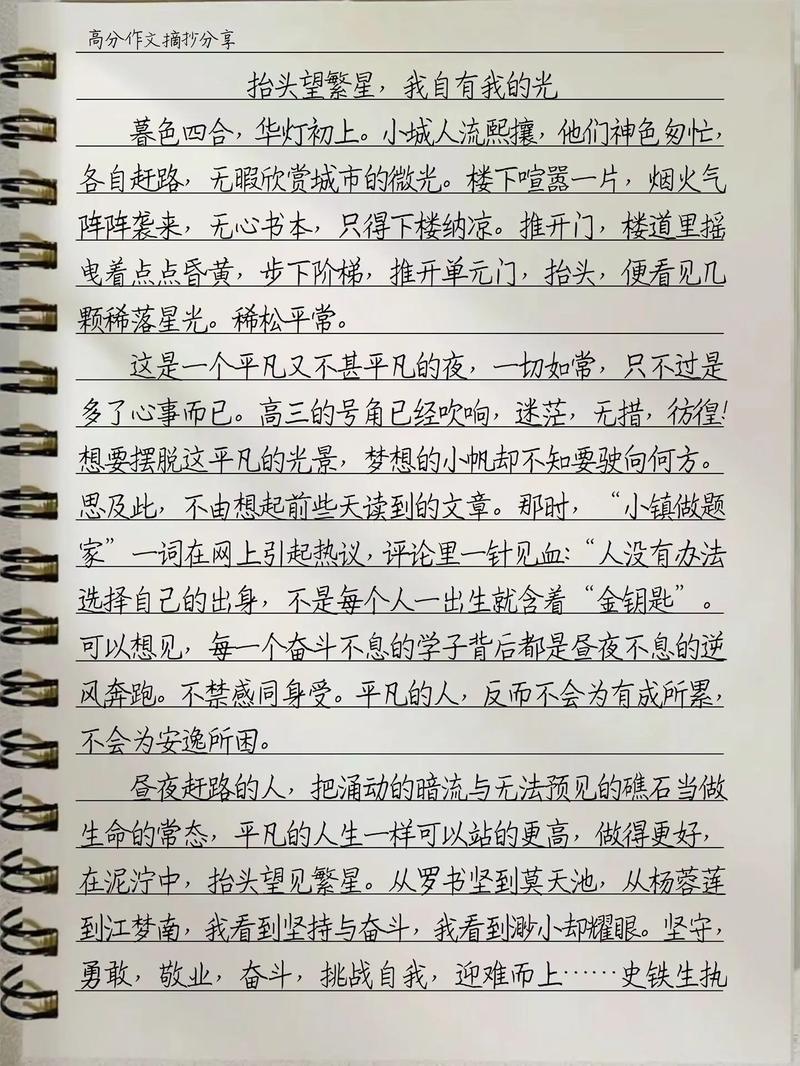 高分作文摘抄分享
抬头望繁星，我自有我的光
暮色四合，华灯初上。小城人流熙攘，他们神色匆忙，
各自赶路，无暇欣赏城市的微光。楼下喧嚣一片，烟火气
阵阵袭来，无心书本，只得下楼纳凉。推开门，楼道里摇
曳着点点昏黄，步下阶梯，推开单元门，抬头，便看见几
颗稀落星光。稀松平常。
这是一个平凡又不甚平凡的夜，一切如常，只不过是
多了心事而已。高三的号角已经吹响，迷茫，无措，彷徨！
想要摆脱这平凡的光景，梦想的小帆却不知要驶向何方。
思及此，不由想起前些天读到的文章。那时，“小镇做题
家”一词在网上引起热议，评论里一针见血：“人没有办法
选择自己的出身，不是每个人一出生就含着“金钥匙”。
可以想见，每一个奋斗不息的学子背后都是昼夜不息的逆
风奔跑。不禁感同身受。平凡的人，反而不会为有成所累，
不会为安逸所困。
昼夜赶路的人，把涌动的暗流与无法预见的礁石当做
生命的常态，平凡的人生一样可以站的更高，做得更好，
在泥泞中，抬头望见繁星。从罗书坚到莫天池，从杨蓉莲
到江梦南，我看到坚持与奋斗，我看到渺小却耀眼。坚守，
勇敢，敬业，奋斗，挑战自我，迎难而上……史铁生执